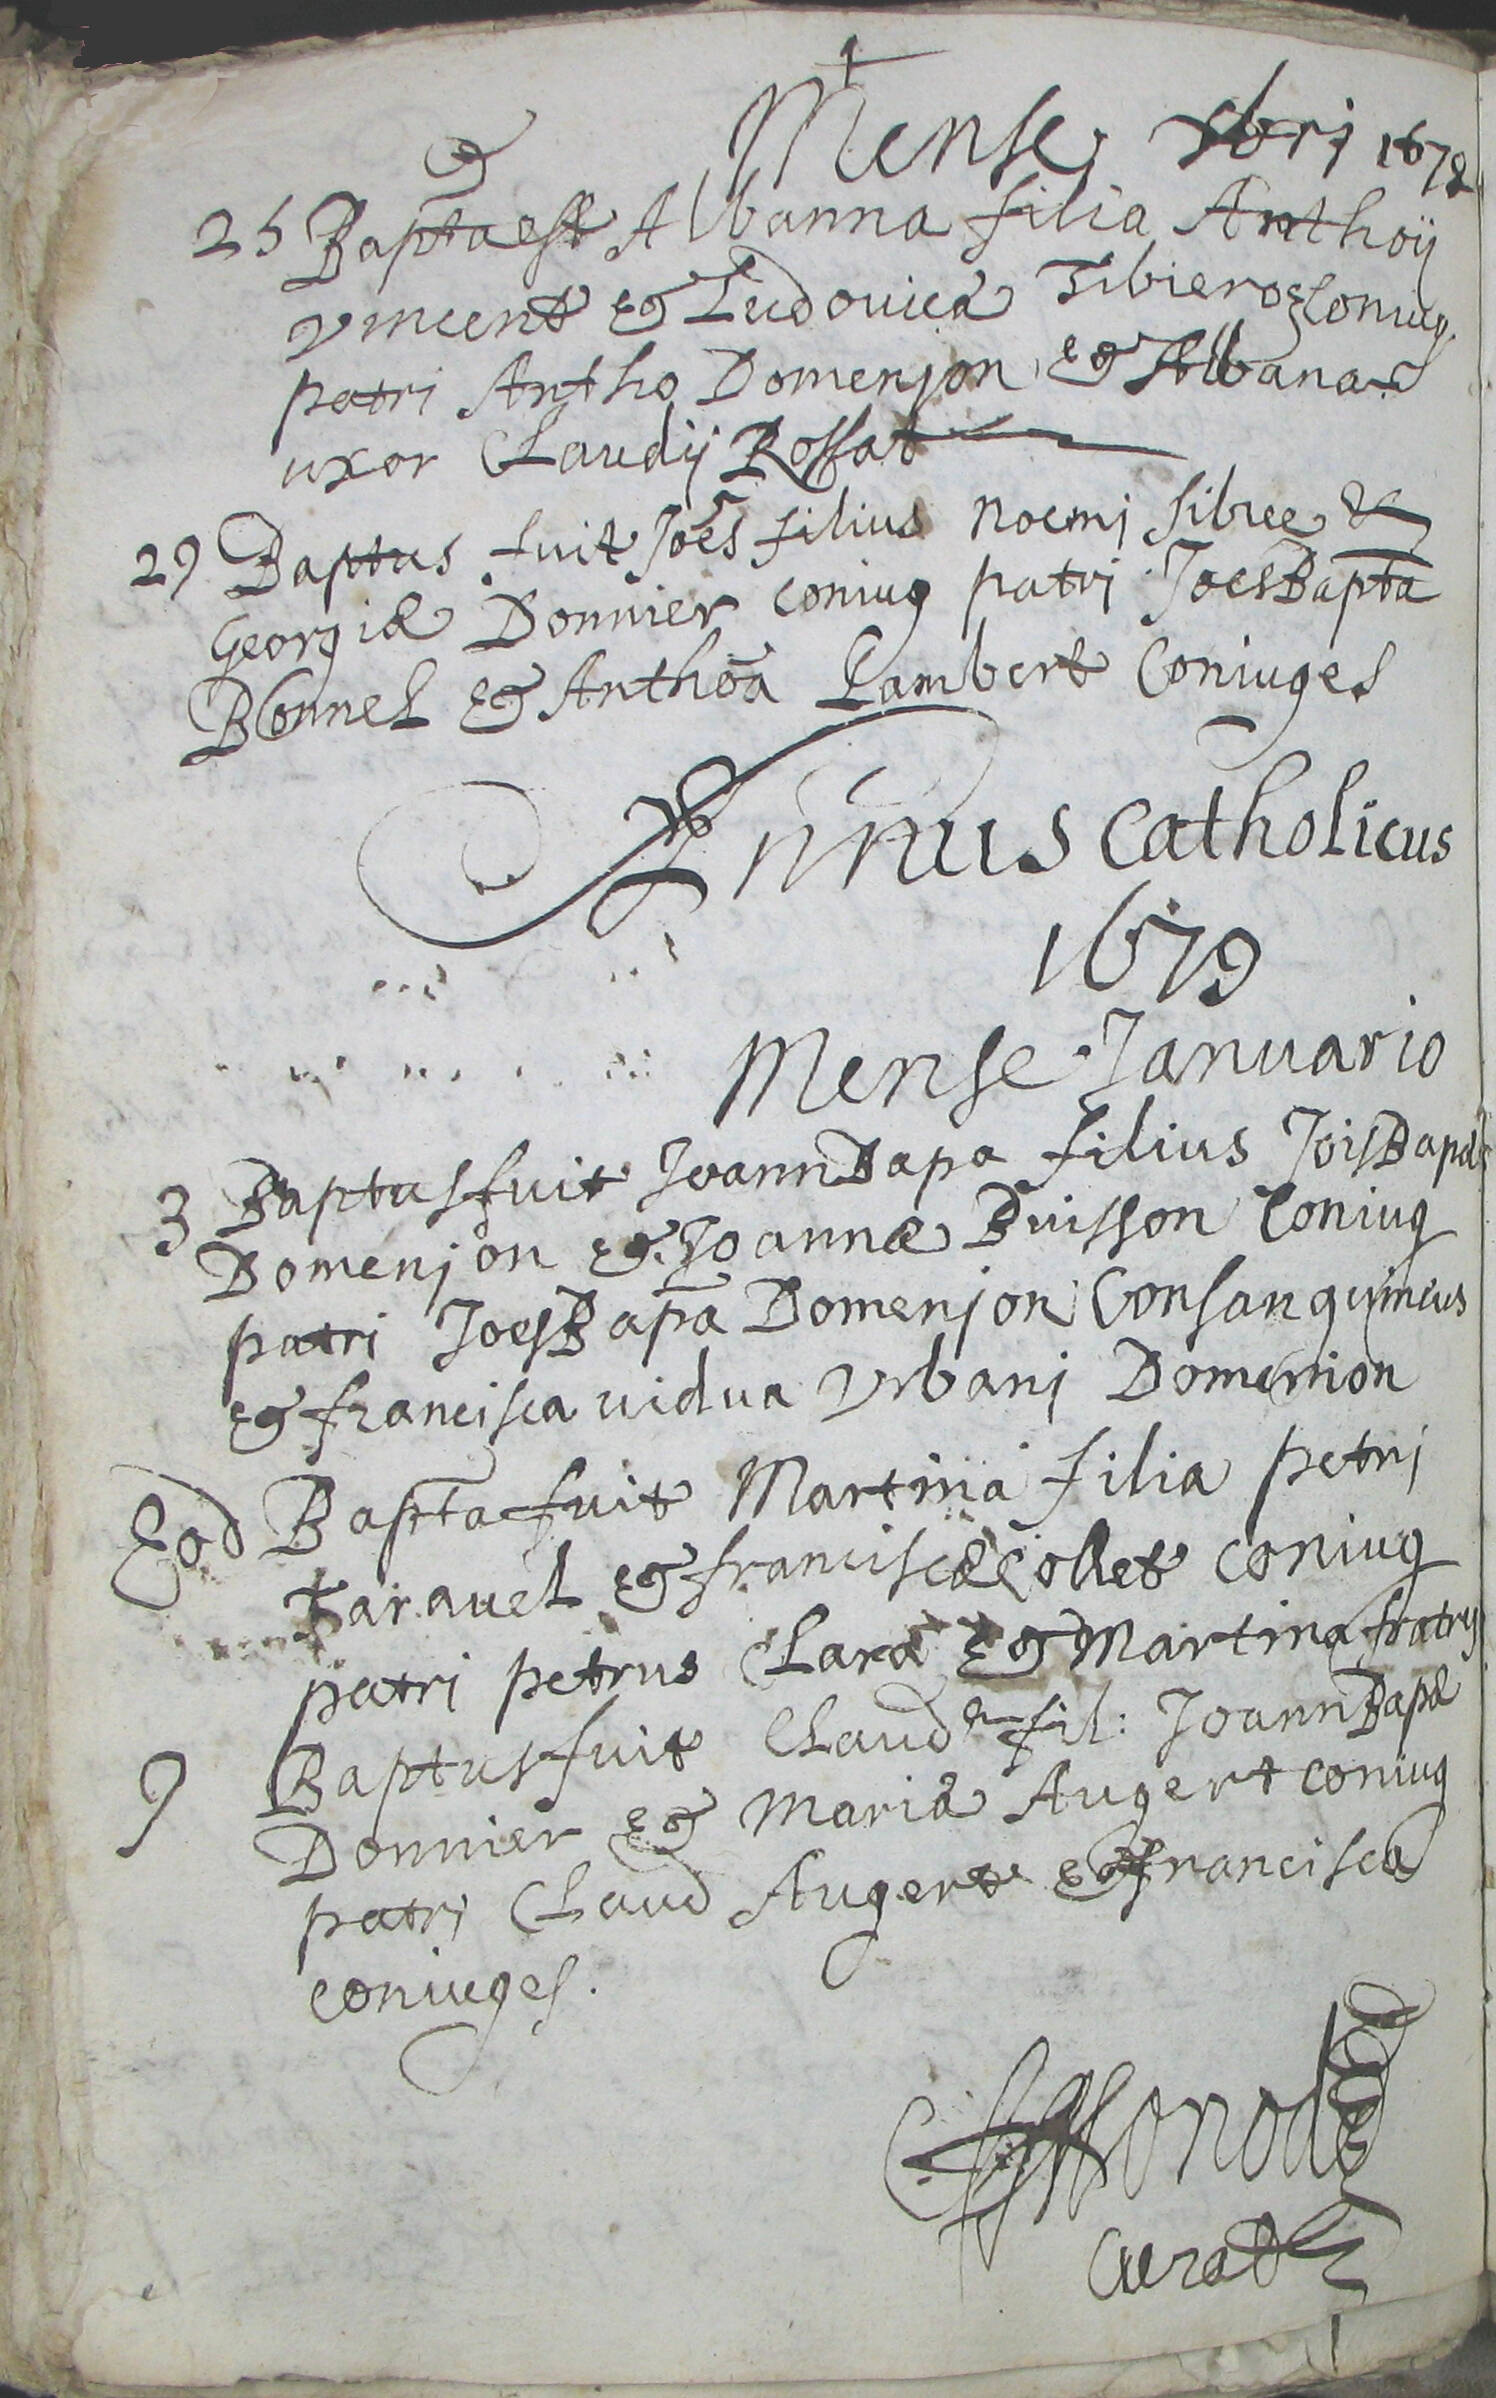 Mense xbri 1678
25 Bapta est Albanna filia Anthoij
vincent et Ludovicæ Tibiero coniug
patri Antho Domenjon et Albana
uxor Claudij Rossat
29 Baptus fuit Joes filius noemj sibue &
Georgiæ Donnier coniug patrj Joes Bapta
Bonnel et Anthoa Lambert Coniuges
Annus Catholicus
1679
Mense Januario
3 Baptus fuit Joann Bapa filius Jois Bapæ
Domenjon et Joannæ Buisson Coniug
patri Joes Bapa Domenjon Consanguineus
et francisca vidua Vrbanj Domenion
Eod Bapta fuit Martina filia petrj
taravel et franciscæ Collet coniug
patri petrus Clara et Martina fratrij
9 Baptus fuit Claud fil: Joann Bapæ
Donnier et Mariæ Augert coniug
patrj Claud Augert et francisca
coniuges.
Curat